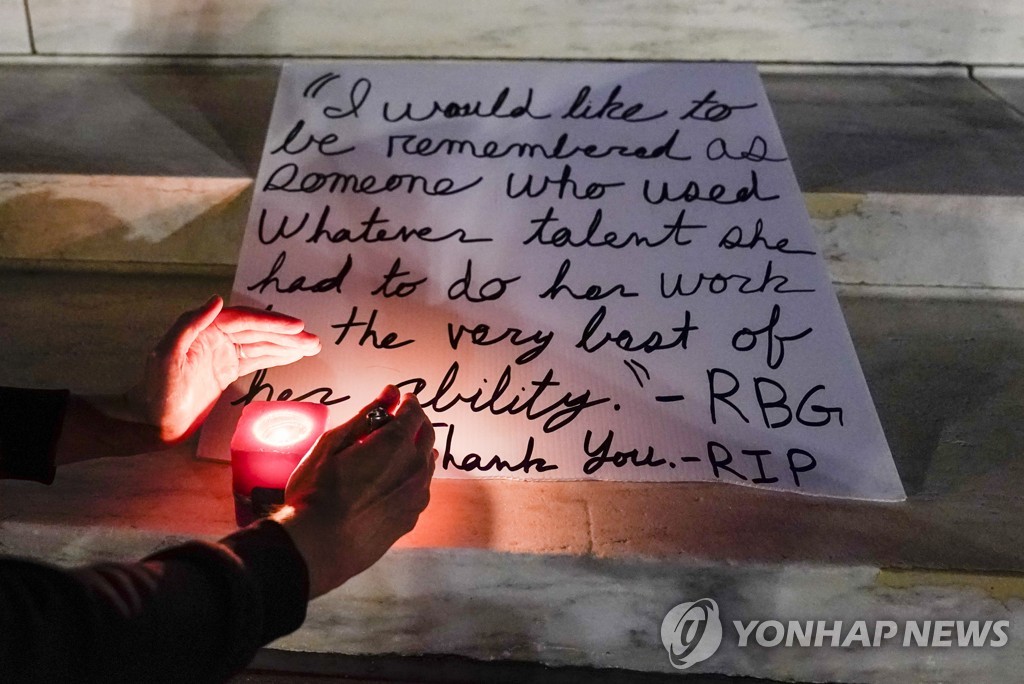 "I would like to
be remembered as
someone who used
whatever talent she
had to do her work
the very best of
her ability." - RBG
Thank You. - RIP
YONHAP NEWS